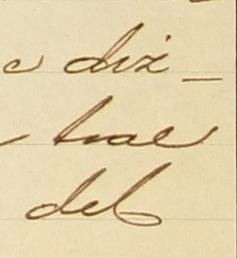 e diz-
trae
del